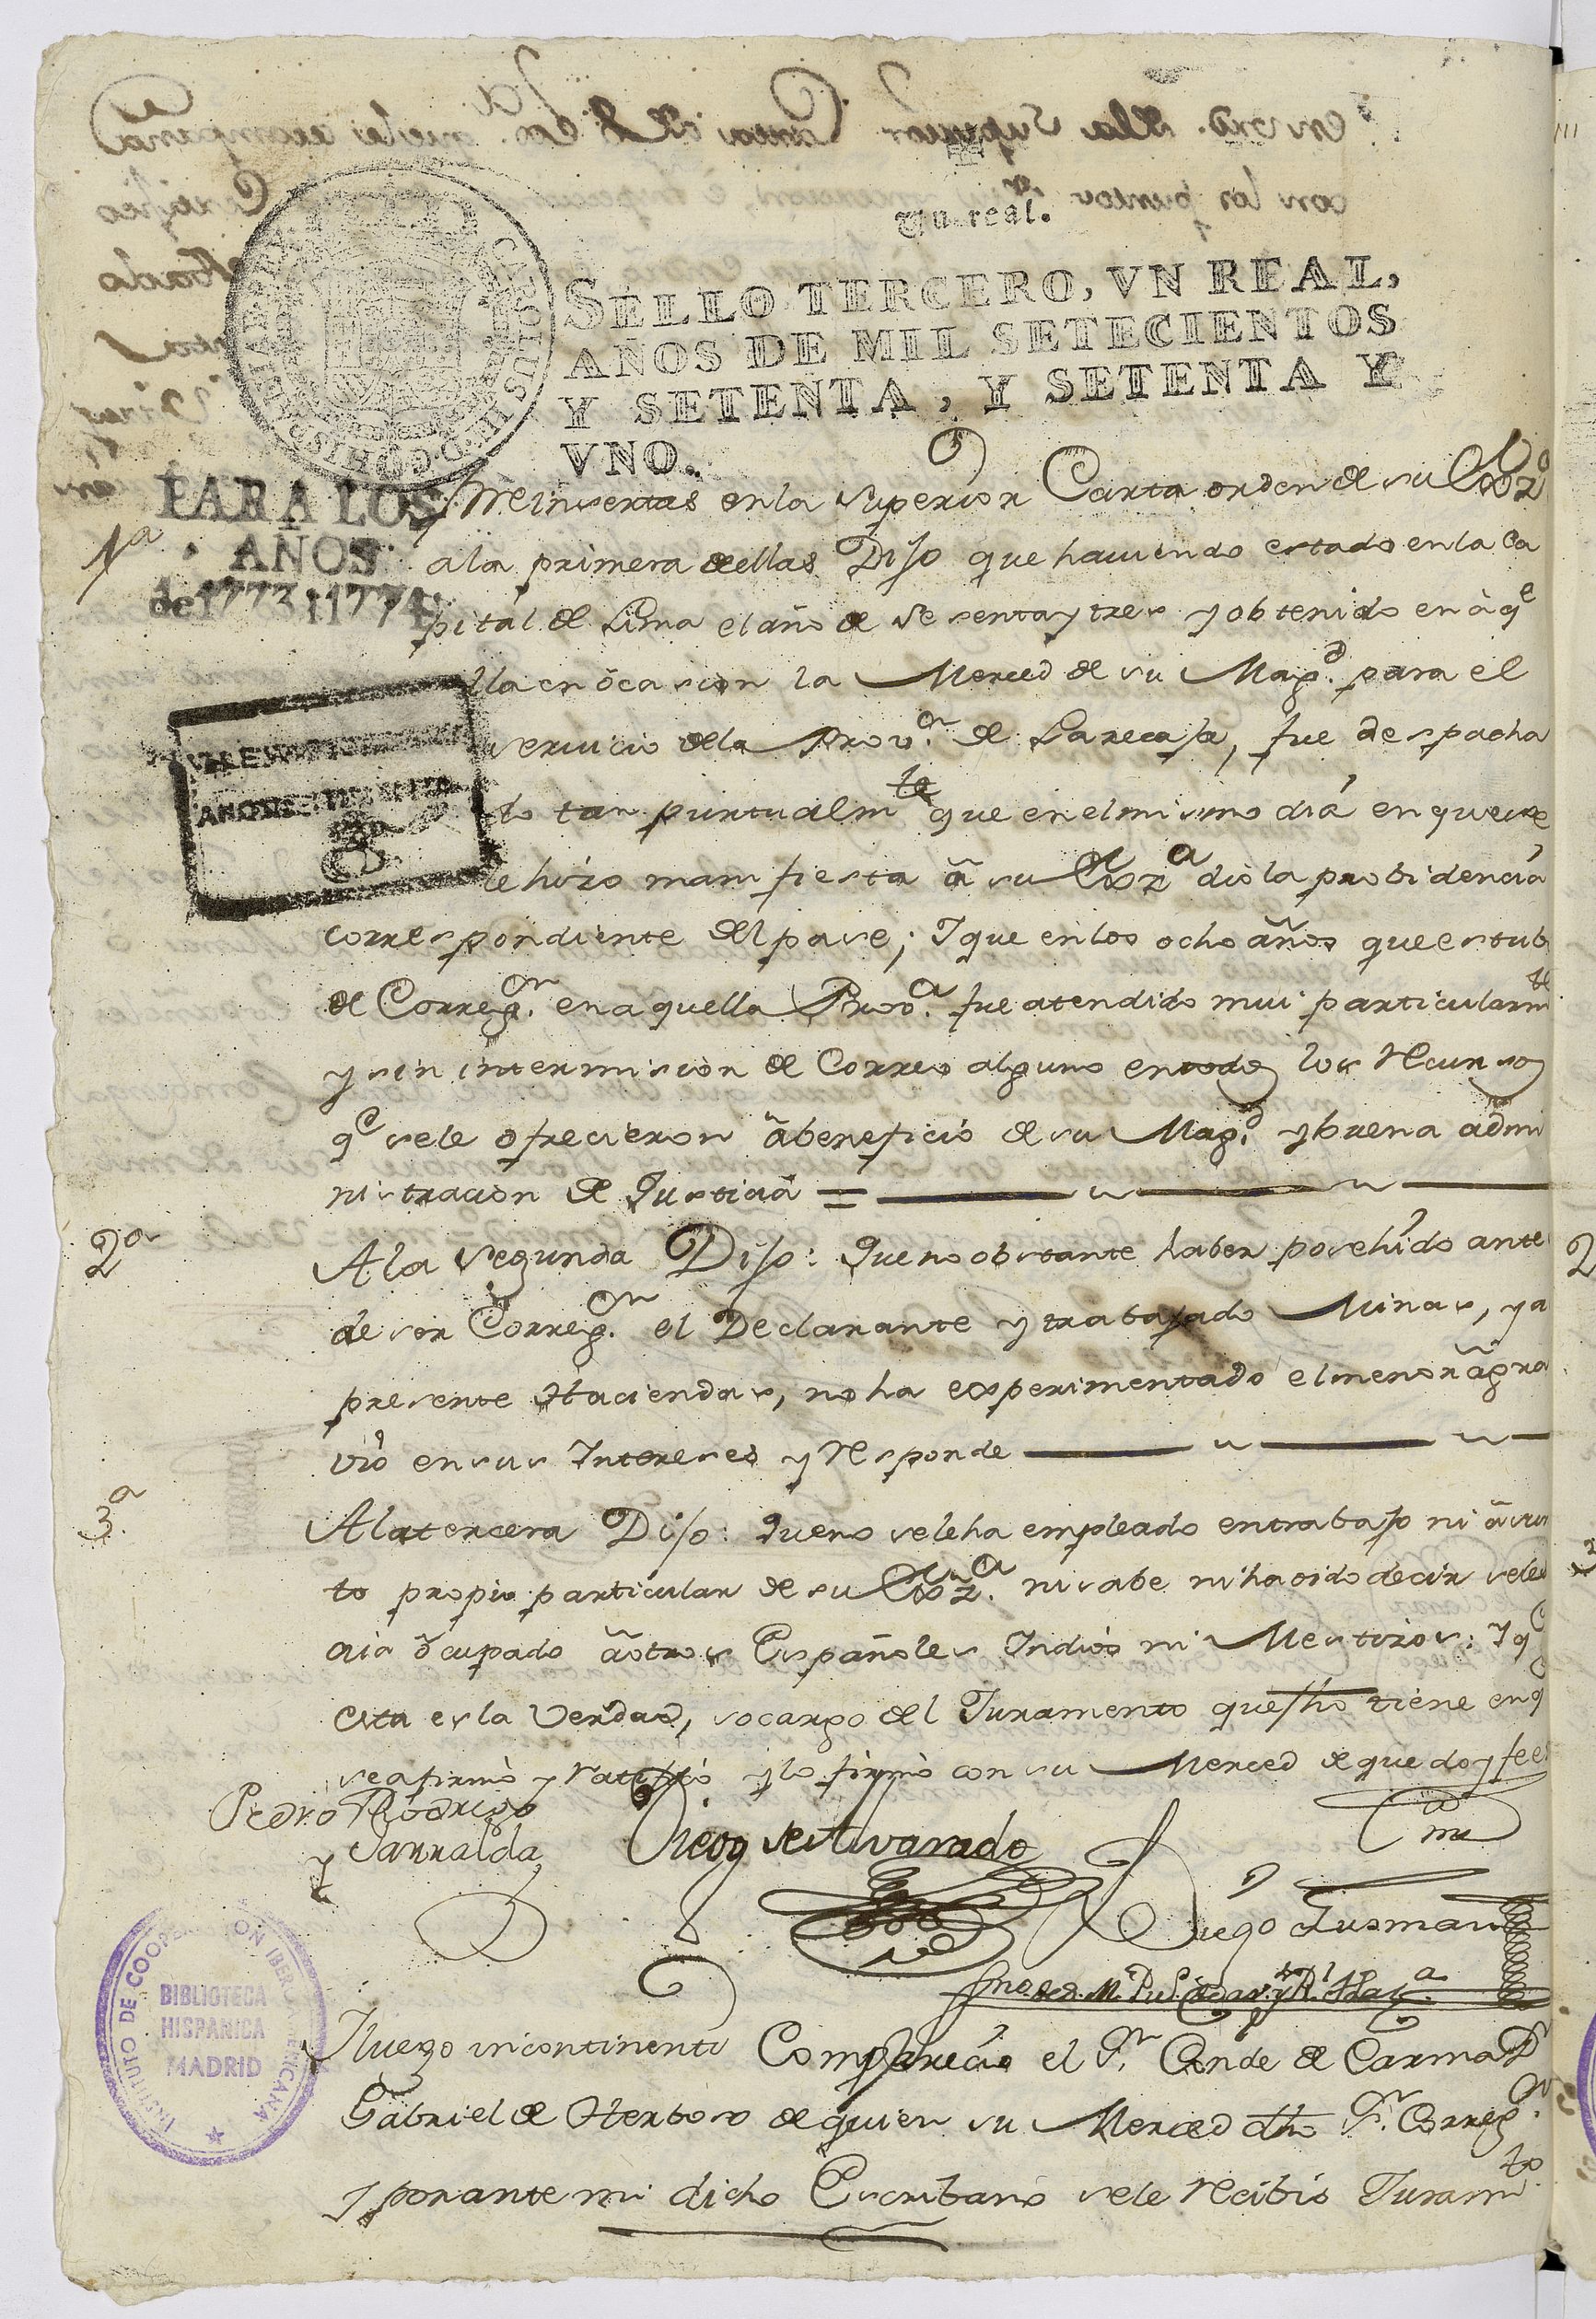 Un real.
SELLO TERCERO, VN REAL,
AÑOS DE MIL SETECIENTOS
Y SETENTA, Y SETENTA Y
VNO.
PARA LOS
AÑOS
de 1773 i 1774
1ª
Ymreinsertas en la Superior Carta orden de su Exª
a la primera de ellas Dijo que haviendo estado en la Ca
pital de Lima el año de Sesenta y tres y obtenido en àqe
lla enòcasion la Merced de su Magd. para el
servicio de la Prova. de Larecaja, fue despacha
do tan puntualmte que en el mismo dià en que se
le hizo manifiesta à su Exª dio la probidencia
correspondiente del pase; Y que en los ocho años que estub
de Corregor. en aquella Prova. fue atendido mui particularmte
y sin intermision de Correo alguno en todos los Recursos
qe se le ofrecieron à beneficio de su Magd. y buena admi
nistracion de Justicia =
2ª
A la Segunda Dijo: Que no obstante haber posehido ante
de ser Corregor. el Declarante y trabajado Minas, y a
presente Haciendas, no ha experimentado el menor àgra
vio en sus Intereses y Responde
3ª
A la tercera Dijo: Que no se le ha empleado en trabajo ni àsun
to propio particular de su Exª. ni sabe ni ha oido decir sele
aia òcupado àotros Españoles Indios ni Mestizos: Y qe
esta es la Verdad, so cargo del Juramento que fho tiene en qe
se afirmò y Ratificó y lo firmò con su Merced de que doy fee
Pedro Rodrigo
y Sarralda
Diego de Alvarado
Ante mi
Diego Gusman
Y luego incontinenti Comparecio el Sr. Conde de Carma Dn
Gabriel de Herboso de quien su Merced dho Sr. Corregor.
y por ante mi dicho Escribano se le Recibió Juramto.
INSTITUTO DE COOPERACION IBEROAMERICANA
BIBLIOTECA
HISPANICA
MADRID